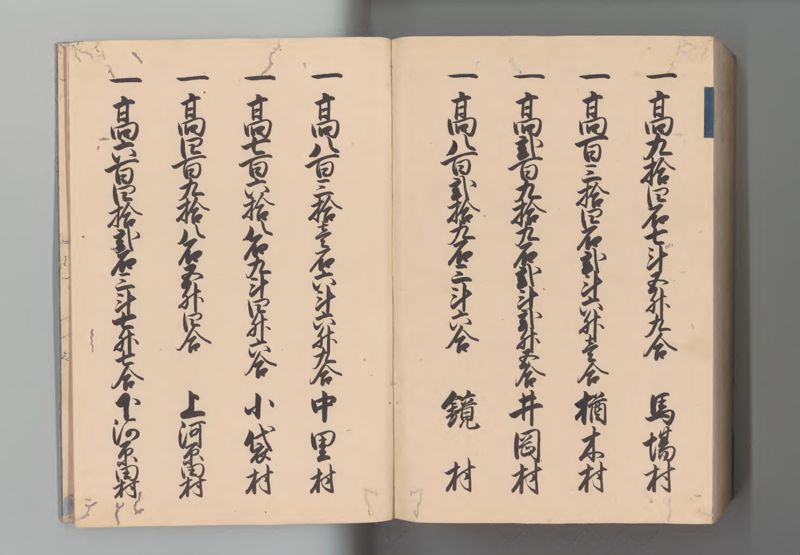 一高九拾四石七斗五升九合 馬場村
一高百三拾四石弐斗六升壱合 楢木村
一高弐百九拾九石弐斗弐升五合 井岡村
一高八百弐拾九石三斗六合 鏡村
一高八百三拾壱石六斗六升九合 中里村
一高七百六拾八石九斗四升六合 小袋村
一高四百九拾八石五升四合 上河原田村
一高六百四拾弐石三斗七升七合 下河原田村